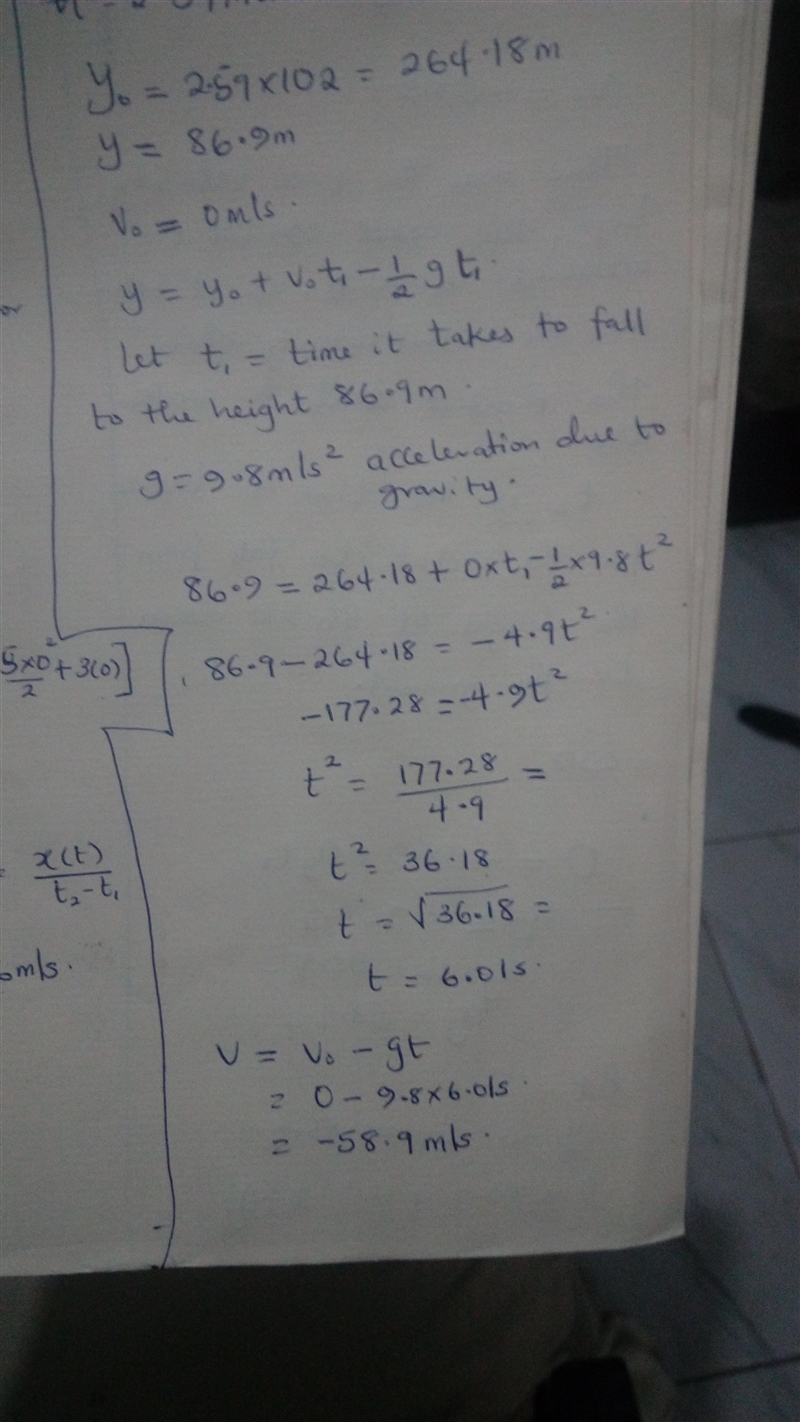 y₀ = 2.59 x 102 = 264.18m
y = 86.9m
v₀ = 0m/s.
y = y₀ + v₀t₁ - 1/2 g t₁.
or
Let t₁ = time it takes to fall
to the height 86.9m.
g = 9.8m/s² acceleration due to
gravity.
86.9 = 264.18 + 0xt₁ - 1/2 x 9.8t²
5x0²/2 + 3(0)]
86.9 - 264.18 = -4.9t²
-177.28 = -4.9t²
t² = 177.28/4.9 =
t² = 36.18
= x(t)/t₂-t₁
t = √36.18 =
t = 6.01s.
0m/s.
V = V₀ - gt
= 0 - 9.8x6.01s.
= -58.9m/s.